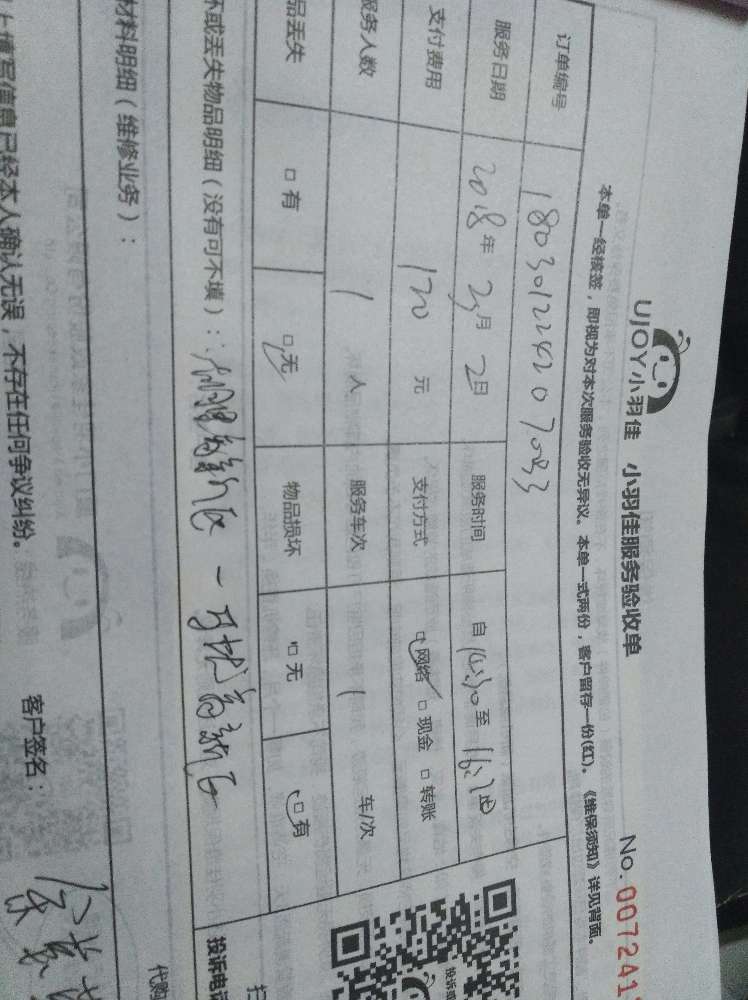 UJOY小羽佳 小羽佳服务验收单
No. 007241
本单一经核签，即视为对本次服务验收无异议。本单一式两份，客户留存一份(红)。《维保须知》详见背面。
订单编号 180301224207033
服务日期 2018年3月2日 服务时间 自 至
支付费用 120元 支付方式 □网络 □现金 □转账
服务人数 1人 服务车次 1 车/次
品丢失 □有 □无 物品损坏 □无 □有
坏或丢失物品明细（没有可不填）：
材料明细（维修业务）：
上填写信息已经本人确认无误，不存在任何争议纠纷。
客户签名：
投诉电
代购
扫